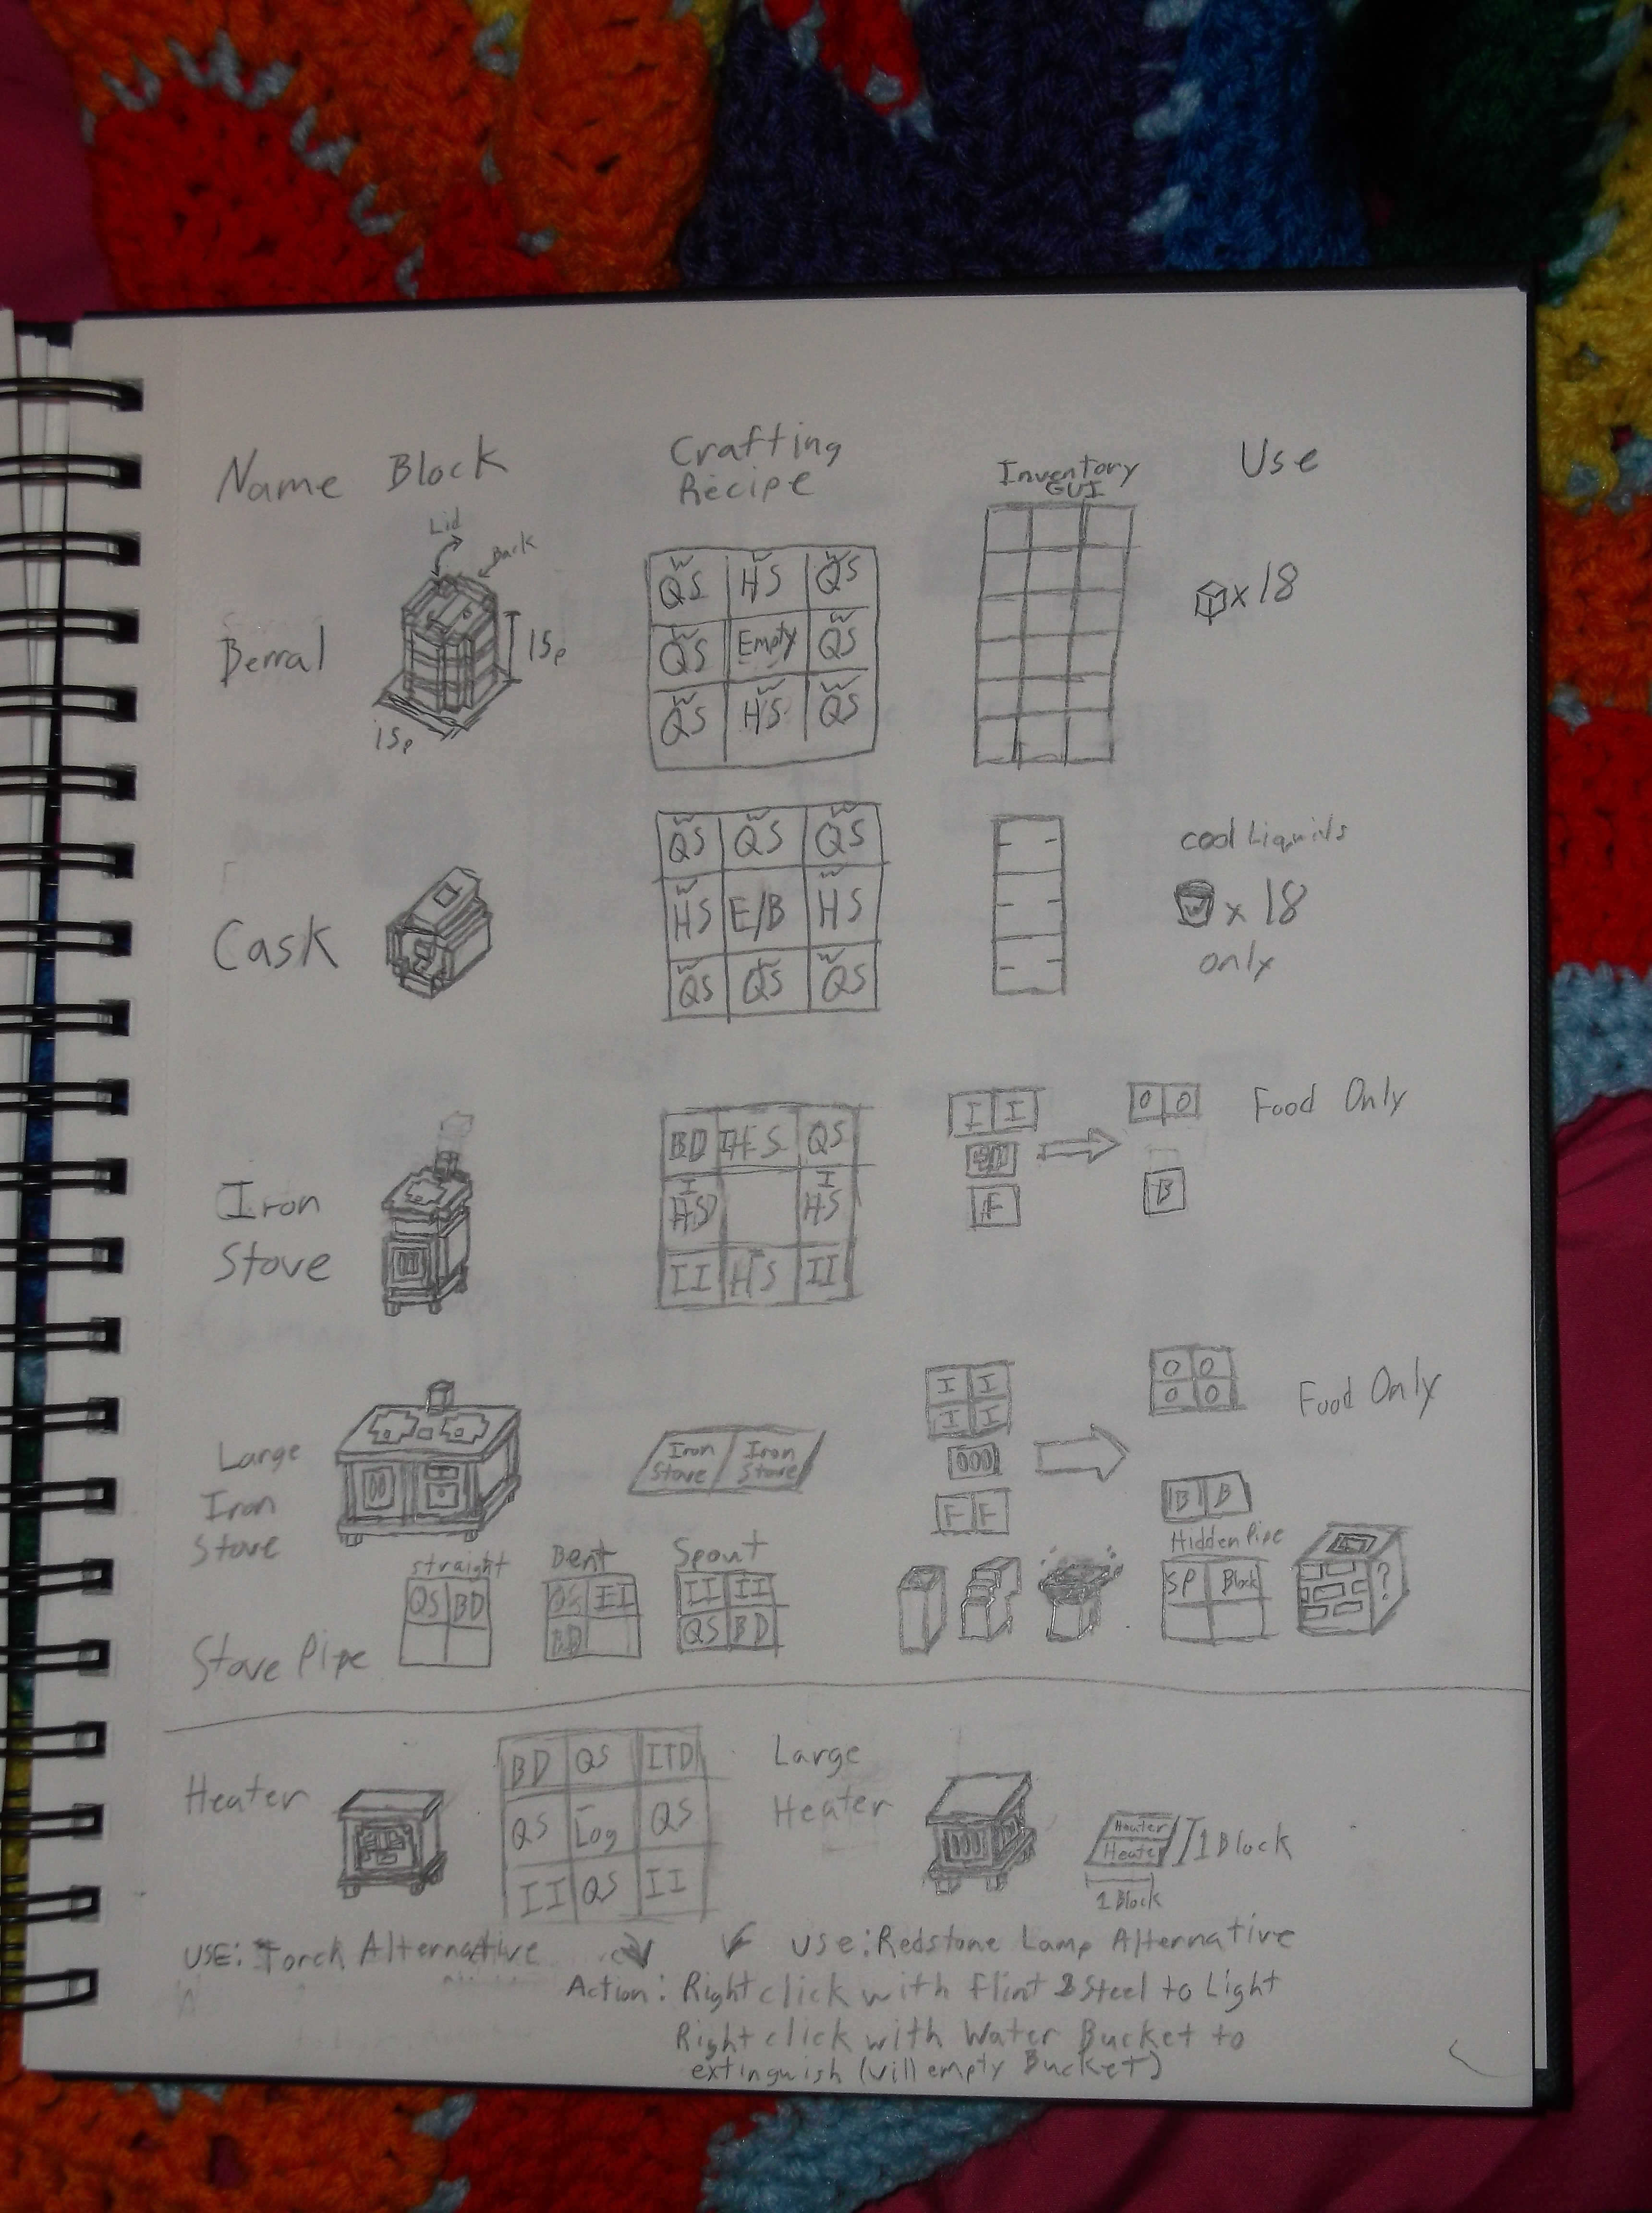 Name Block Crafting Recipe Inventory GUI Use
Lid
Back
Berral
15p
15p
W QS W HS W QS
W QS Empty W QS
W QS W HS W QS
x18
Cask
W QS W QS W QS
W HS E/B HS
W QS QS W QS
cool Liquids
W x 18
only
Iron
Stove
BD IHS QS
I HS I HS
II HS II
I I
F
O O
B
Food Only
Large
Iron
Stove
Iron Stove Iron Stove
I I
I I
F F
O O
O O
B B
Food Only
Stove Pipe
Straight
QS BD
Bent
QS II
BD
Spout
II II
QS BD
Hidden Pipe
SP Block
?
Heater
BD QS ITD
QS Log QS
II QS II
Large
Heater
Heater
Heater
1 Block
1 Block
USE: Torch Alternative
Use: Redstone Lamp Alternative
Action: Right click with Flint & Steel to Light
Right click with Water Bucket to
extinguish (will empty Bucket)